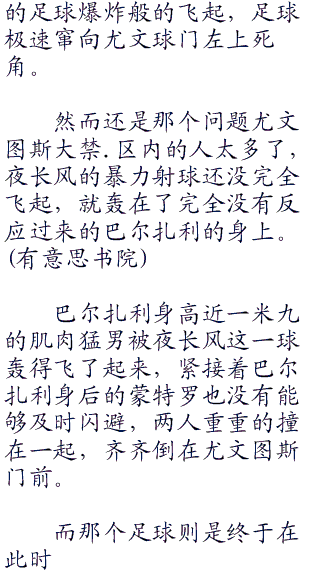 的足球爆炸般的飞起，足球
极速窜向尤文球门左上死
角。
然而还是那个问题尤文
图斯大禁.区内的人太多了，
夜长风的暴力射球还没完全
飞起，就轰在了完全没有反
应过来的巴尔扎利的身上。
(有意思书院)
巴尔扎利身高近一米九
的肌肉猛男被夜长风这一球
轰得飞了起来，紧接着巴尔
扎利身后的蒙特罗也没有能
够及时闪避，两人重重的撞
在一起，齐齐倒在尤文图斯
门前。
而那个足球则是终于在
此时